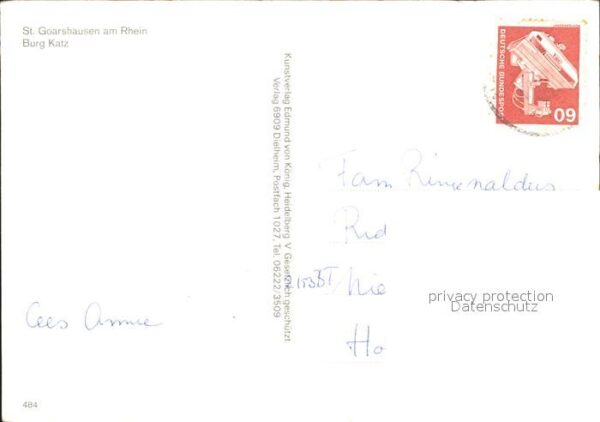 St. Goarshausen am Rhein
Burg Katz
DEUTSCHE BUNDESPOST
60
Kunstverlag Edmund von König, Heidelberg V Gesetzlich geschützt
Verlag 6909 Dielheim, Postfach 1027, Tel. 06222/3509
Fam
Nie
Ho
privacy protection
Datenschutz
Cees Annie
484